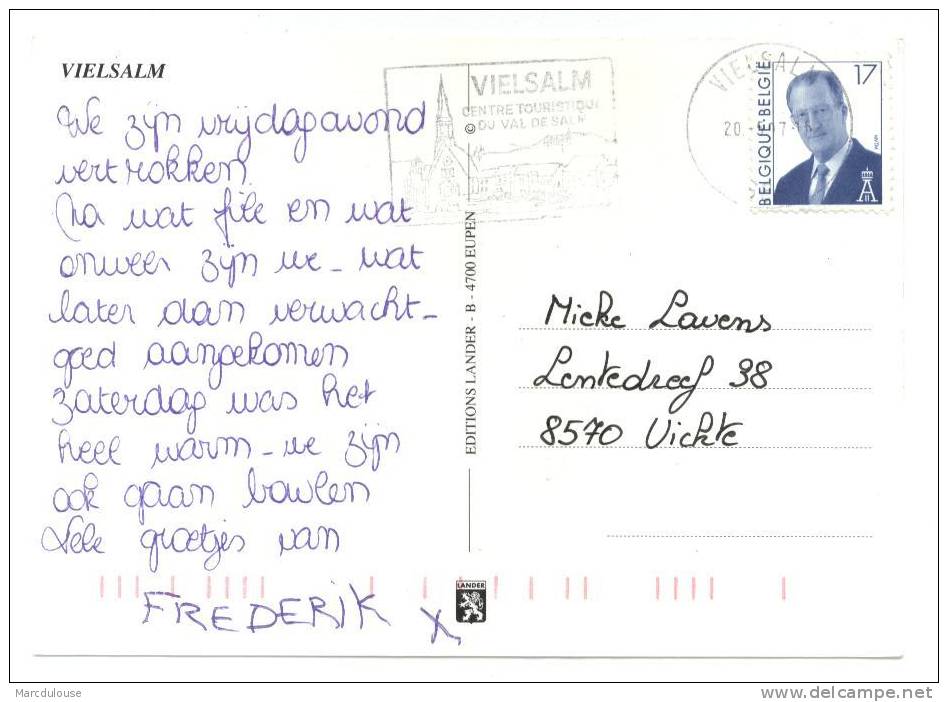 VIELSALM
We zijn vrijdagavond
vertrokken.
Na wat file en wat
onweer zijn we - wat
later dan verwacht -
goed aangekomen
Zaterdag was het
heel warm - we zijn
ook gaan bowlen
Vele groetjes van
FREDERIK X
VIELSALM
CENTRE TOURISTIQUE
DU VAL DE SALM
VIELSALM
20
BELGIQUE-BELGIË
17
©
EDITIONS LANDER - B - 4700 EUPEN
Mieke Lavens
Lentedreef 38
8570 Vichte
LANDER
Marcdulouse
delcampe.net